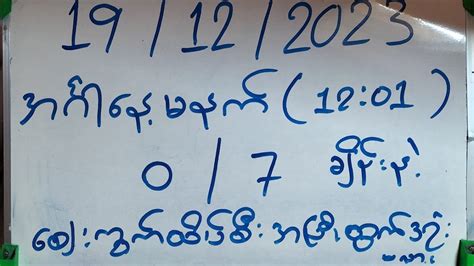 19 / 12 / 2023
အင်္ဂါနေ့ မနက် ( 12:01 )
0 / 7 ချိန်းနဲ့
ဈေးကွက်ထိပ်စီး အပြီးထွက်ဒဲ့